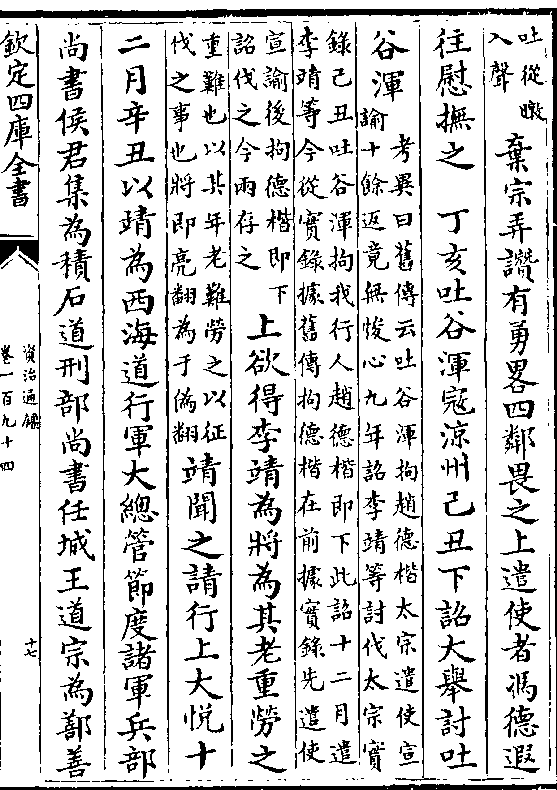 吐從暾
入聲
棄宗弄讚有勇畧四鄰畏之上遣使者馮德遐
往慰撫之　丁亥吐谷渾寇涼州己丑下詔大舉討吐
谷渾
考異曰舊傳云吐谷渾拘趙德楷太宗遣使宣
諭十餘返竟無悛心九年詔李靖等討伐太宗實
錄己丑吐谷渾拘我行人趙德楷即下此詔十二月遣
李靖等今從實錄據舊傳拘德楷在前據實錄先遣使
宣諭後拘德楷即下
詔伐之今兩存之
上欲得李靖為將為其老重勞之
重難也以其年老難勞之以征
伐之事也將即亮翻為于偽翻
靖聞之請行上大悅十
二月辛丑以靖為西海道行軍大總管節度諸軍兵部
尚書侯君集為積石道刑部尚書任城王道宗為鄯善
欽定四庫全書
資治通鑑
卷一百九十四
十七